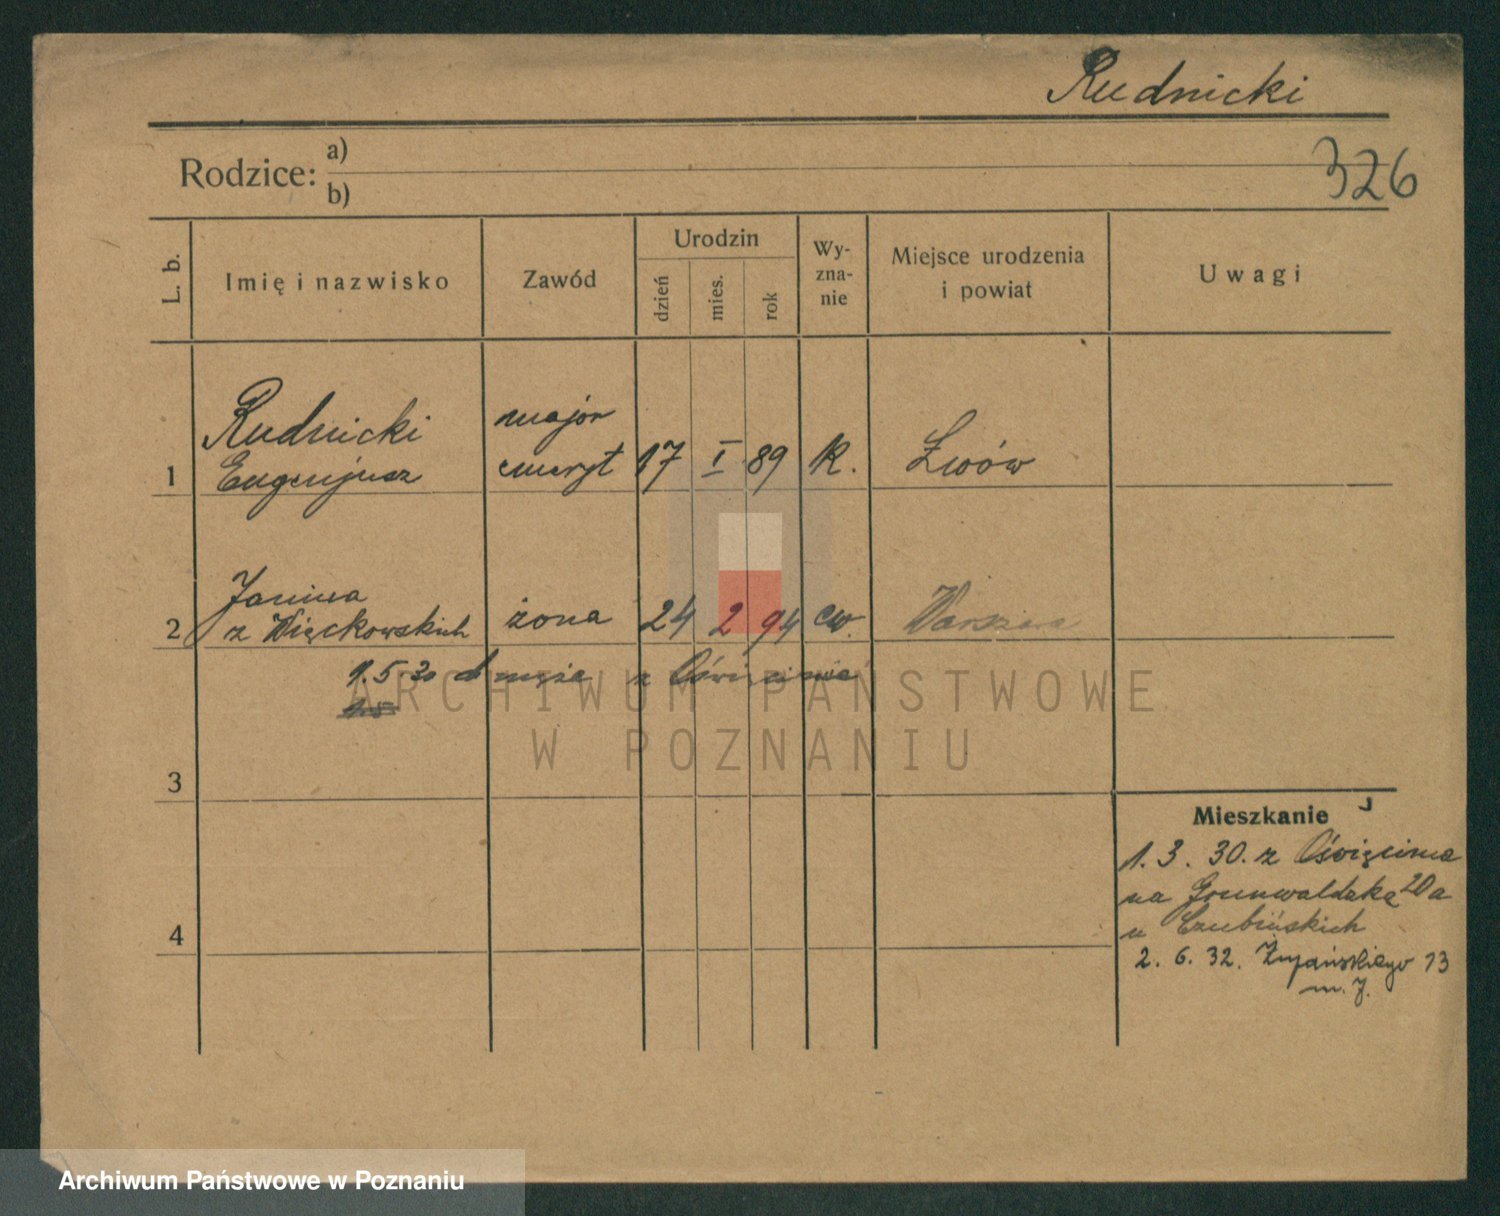 Rudnicki
326
Rodzice: a)
b)
L. b.
Imię i nazwisko
Zawód
Urodzin
dzień
mies.
rok
Wy-
zna-
nie
Miejsce urodzenia
i powiat
Uwagi
1
Rudnicki
Eugenjusz
major
emeryt
17 I 89
Lwów
2
Janina
z Więckowskich
żona
24 2 94
Warszawa
1.5.30 do męża z Oświęcimia
1.5
ARCHIWUM PAŃSTWOWE
W POZNANIU
3
4
Mieszkanie
1. 3. 30. z Oświęcima
na Grunwaldzką 20a
u Czubińskich
2. 6. 32. 13
m. 7.
Archiwum Państwowe w Poznaniu